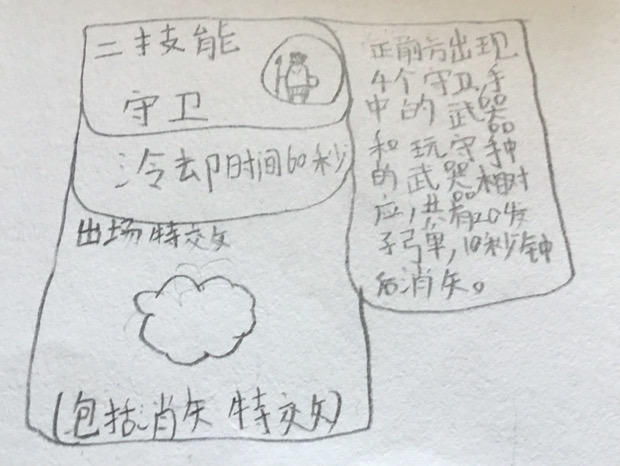 二技能
守卫
冷却时间60秒
出场特效
(包括消失特效)
正前方出现
4个守卫,手
中的武器
和玩家手中
的武器相对
应,共有20发
子弹,10秒钟
后消失。